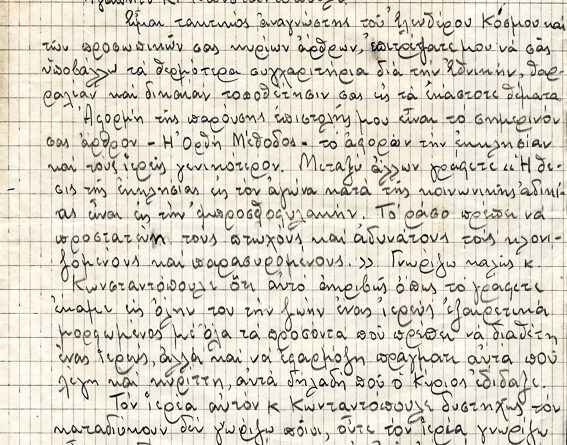 Εἶμαι τακτικὸς ἀναγνώστης τοῦ Ἐλευθέρου Κόσμου καὶ
τῶν προσωπικῶν σας κυρίων ἄρθρων, ἐπιτρέψατέ μου νὰ σᾶς
ὑποβάλλω τὰ θερμότερα συγχαρητήρια διὰ τὴν ἐθνικὴν, θαρ-
ραλέαν καὶ δικαίαν τοποθέτησίν σας εἰς τὰ ἑκάστοτε θέματα
Ἀφορμὴ τῆς παρούσης ἐπιστολῆς μου εἶναι τὸ σημερινὸν
σας ἄρθρον - Ἡ Ὀρθὴ Μέθοδος - τὸ ἀφορῶν τὴν ἐκκλησίαν
καὶ τοὺς ἱερεῖς γενικότερον. Μεταξὺ ἄλλων γράφετε «Ἡ θέ-
σις τῆς ἐκκλησίας εἰς τὸν ἀγῶνα κατὰ τῆς κοινωνικῆς ἀδικί-
ας εἶναι εἰς τὴν ἐμπροσθοφυλακήν. Τὸ ράσο πρέπει νὰ
προστατεύῃ τοὺς πτωχοὺς καὶ ἀδυνάτους τοὺς κλονι-
ζόμενους καὶ παρασυρομένους.» Γνωρίζω καλῶς κ.
Κωνσταντόπουλε ὅτι αὐτὸ ἀκριβῶς ὅπως τὸ γράφετε
ἔκαμε εἰς ὅλην του τὴν ζωὴν ἕνας ἱερεὺς ἐξαιρετικὰ
μορφωμένος μὲ ὅλα τὰ προσόντα ποὺ πρέπει νὰ διαθέτη
ἕνας ἱερεὺς, ἀλλὰ καὶ νὰ ἐφαρμόζη πράγματι αὐτὰ ποὺ
λέγη καὶ κηρύττη, αὐτὰ δηλαδὴ ποὺ ὁ Κύριος ἐδίδαξε.
Τὸν ἱερέα αὐτὸν κ Κωνταντόπουλε δυστηχῶς τὸν
καταδιώκουν δὲν γωρίζω ποιοι, οὔτε τὸν ἱερέα γνωρίζω